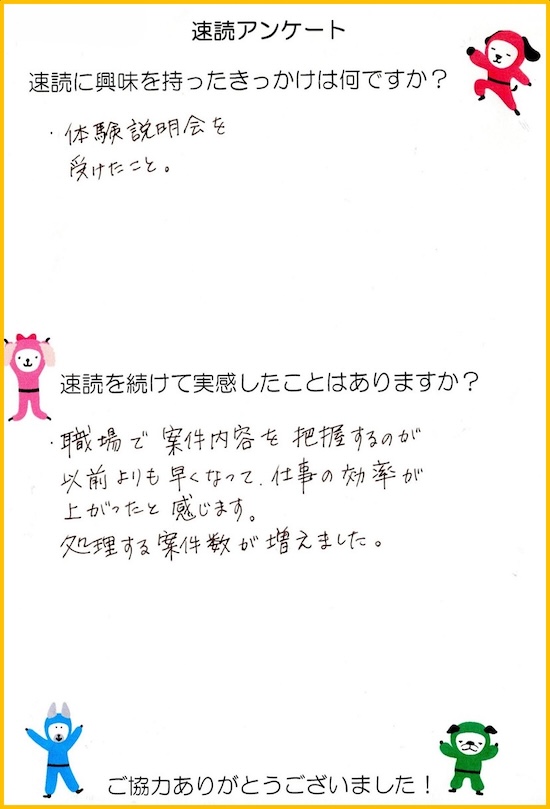 速読アンケート
速読に興味を持ったきっかけは何ですか？
・体験説明会を
受けたこと。
速読を続けて実感したことはありますか？
・職場で案件内容を把握するのが
以前よりも早くなって、仕事の効率が
上がったと感じます。
処理する案件数が増えました。
ご協力ありがとうございました！